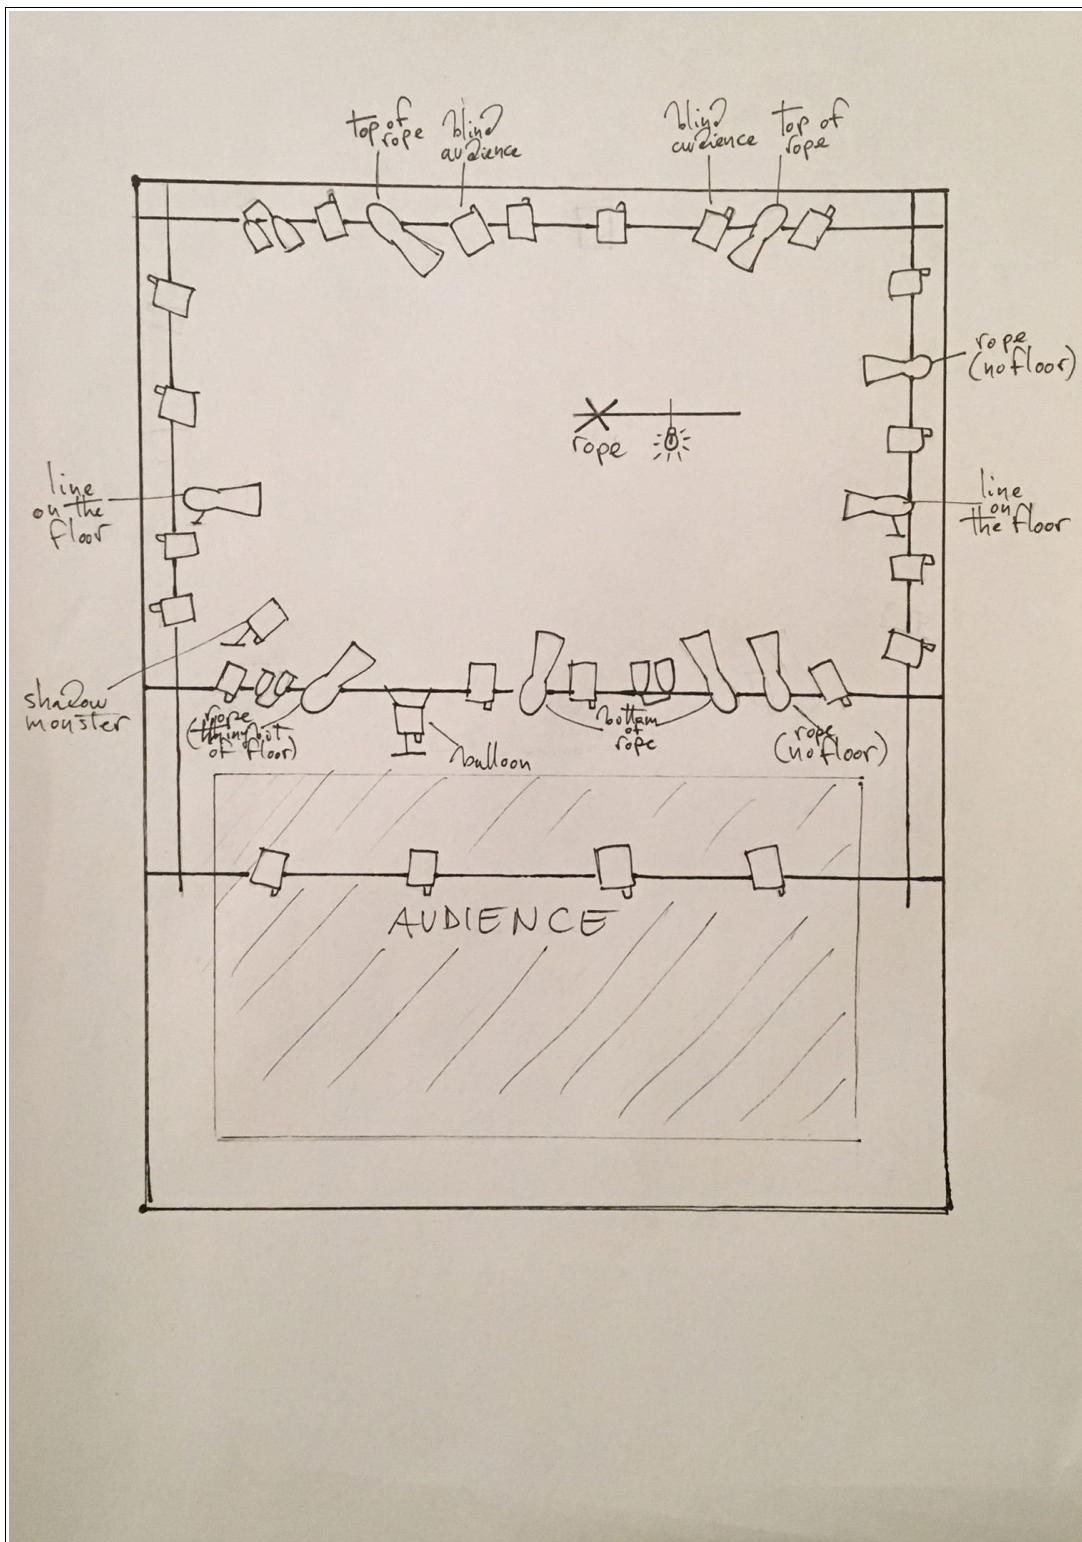 top of
rope
blind
audience
blind
audience
top of
rope
rope
(no floor)
rope
line
on the
floor
line
on
the floor
shadow
monster
rope
of floor)
balloon
bottom
of
rope
rope
(no floor)
AUDIENCE